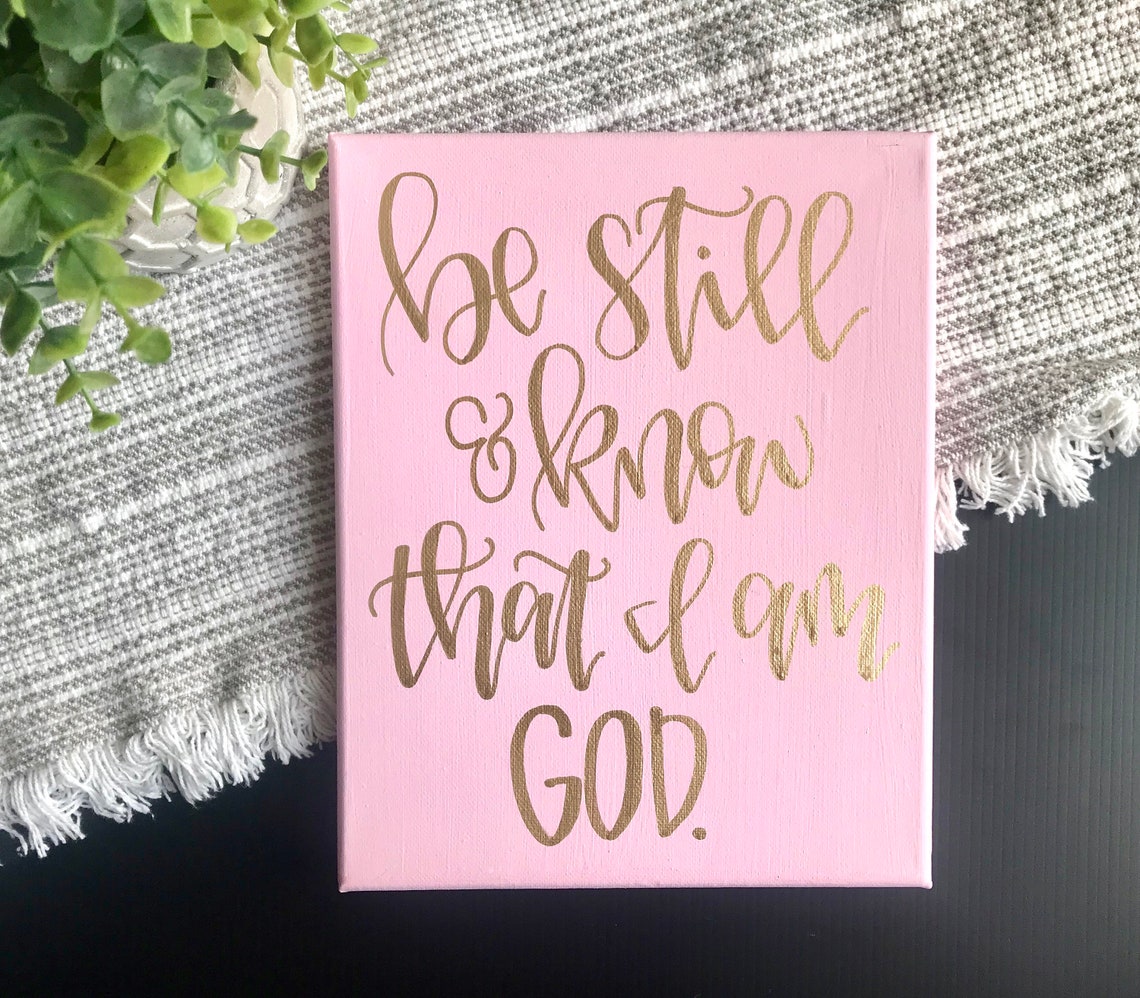 be still
& know
that I am
GOD.